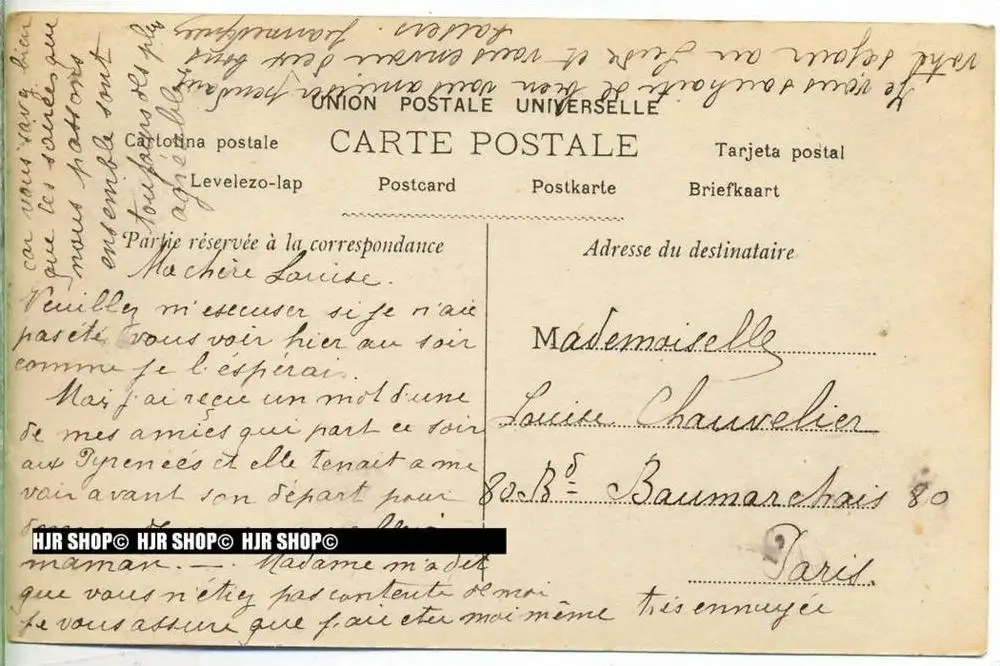 UNION POSTALE UNIVERSELLE
CARTE POSTALE
Cartolina postale
Tarjeta postal
Levelezo-lap
Postcard
Postkarte
Briefkaart
Partie réservée à la correspondance
Ma chère Louise.
Veuillez m'escuser si je n'aie
pas été vous voir hier au soir
comme je l'éspérais.
Mais j'ai reçu un mot d'une
de mes amies qui part ce soir
aux Pyreneés et elle tenait a me
voir avant son départ pour
HJR SHOP© HJR SHOP© HJR SHOP©
maman. —. Madame m'a dit
que vous n'étiez pas contente de moi
je vous assure que j'ai étée moi même très ennuyée
car vous savez bien
que les soirées que
nous passons
ensemble sont
toujours des plus
agréables
Je vous souhaite de bien vous amuser pendant
votre séjour au Lude et vous envoie deux bons
baisers. Jeanne
Adresse du destinataire
Mademoiselle
Louise Chauvelier
80 Bd Baumarchais 80
Paris.